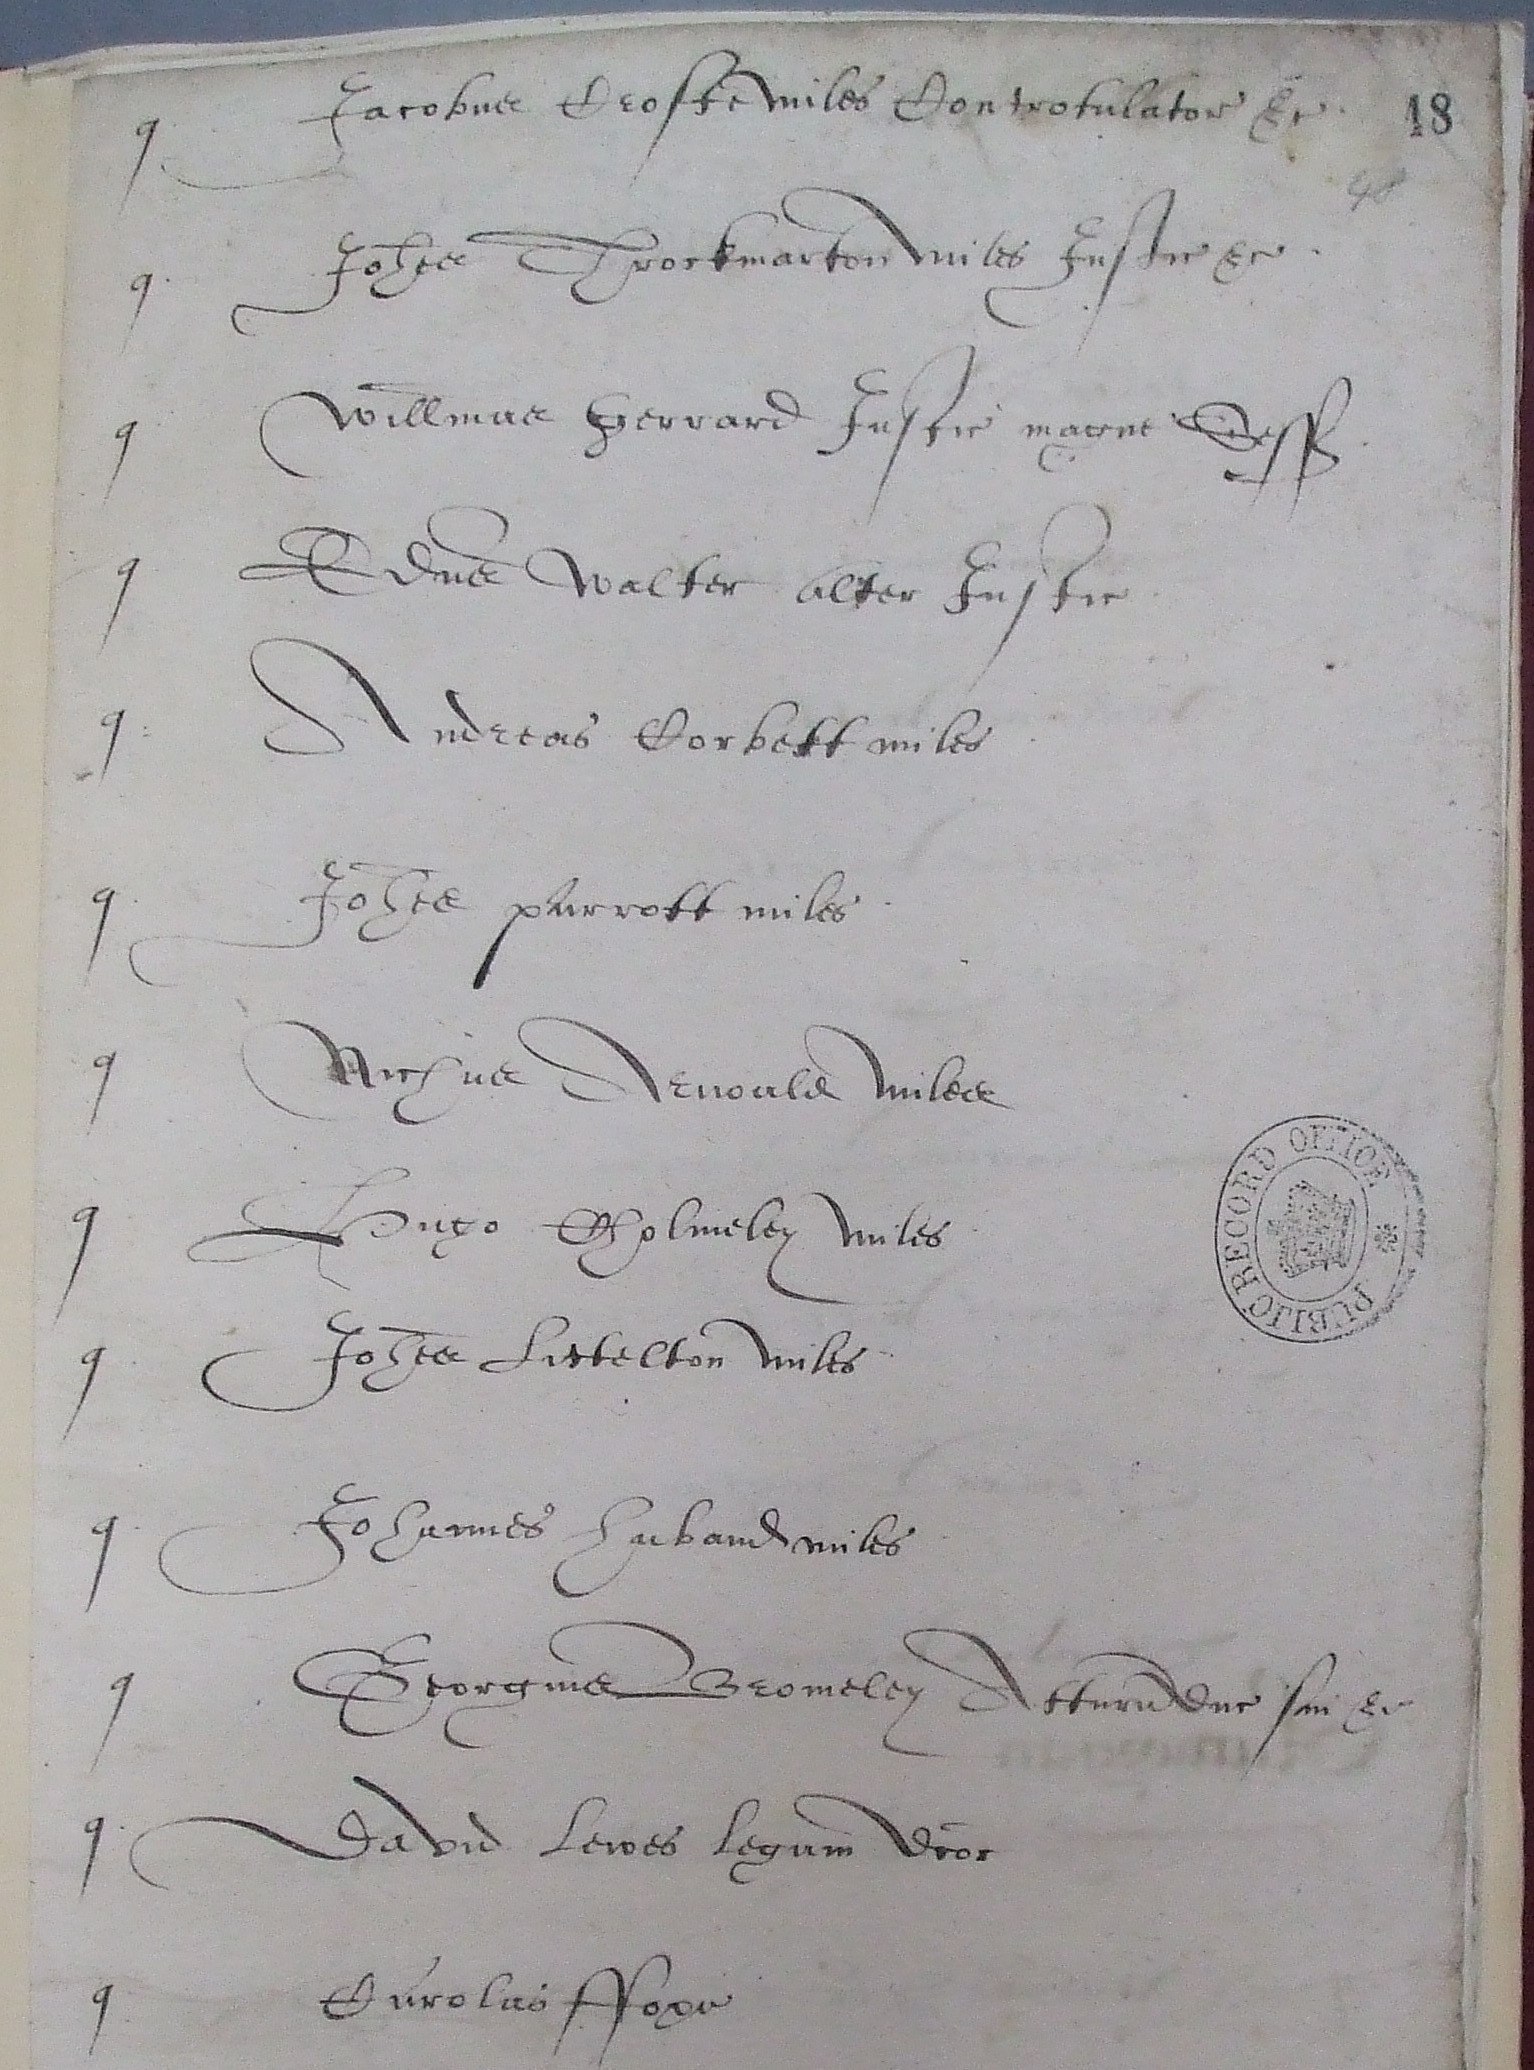 Jacobus Crofte miles Controtulator &c 18
48
q
Johes Throckmarton miles Justic &c
q
Willmus Gerrard Justic magne Sess
q
Edrus Walter alter Justic
q
Andreas Corbett miles
q
Johes parrott miles
q
Nichus Arnould miles
q
Hugo Cholmeley miles
q
Johes Littelton miles
q
Johannes Huband miles
q
Georgius Bromeley Atturn Duc sui &c
q
David Lewes legum dcor
q
Carolus ffoxe
q
PUBLIC RECORD OFFICE